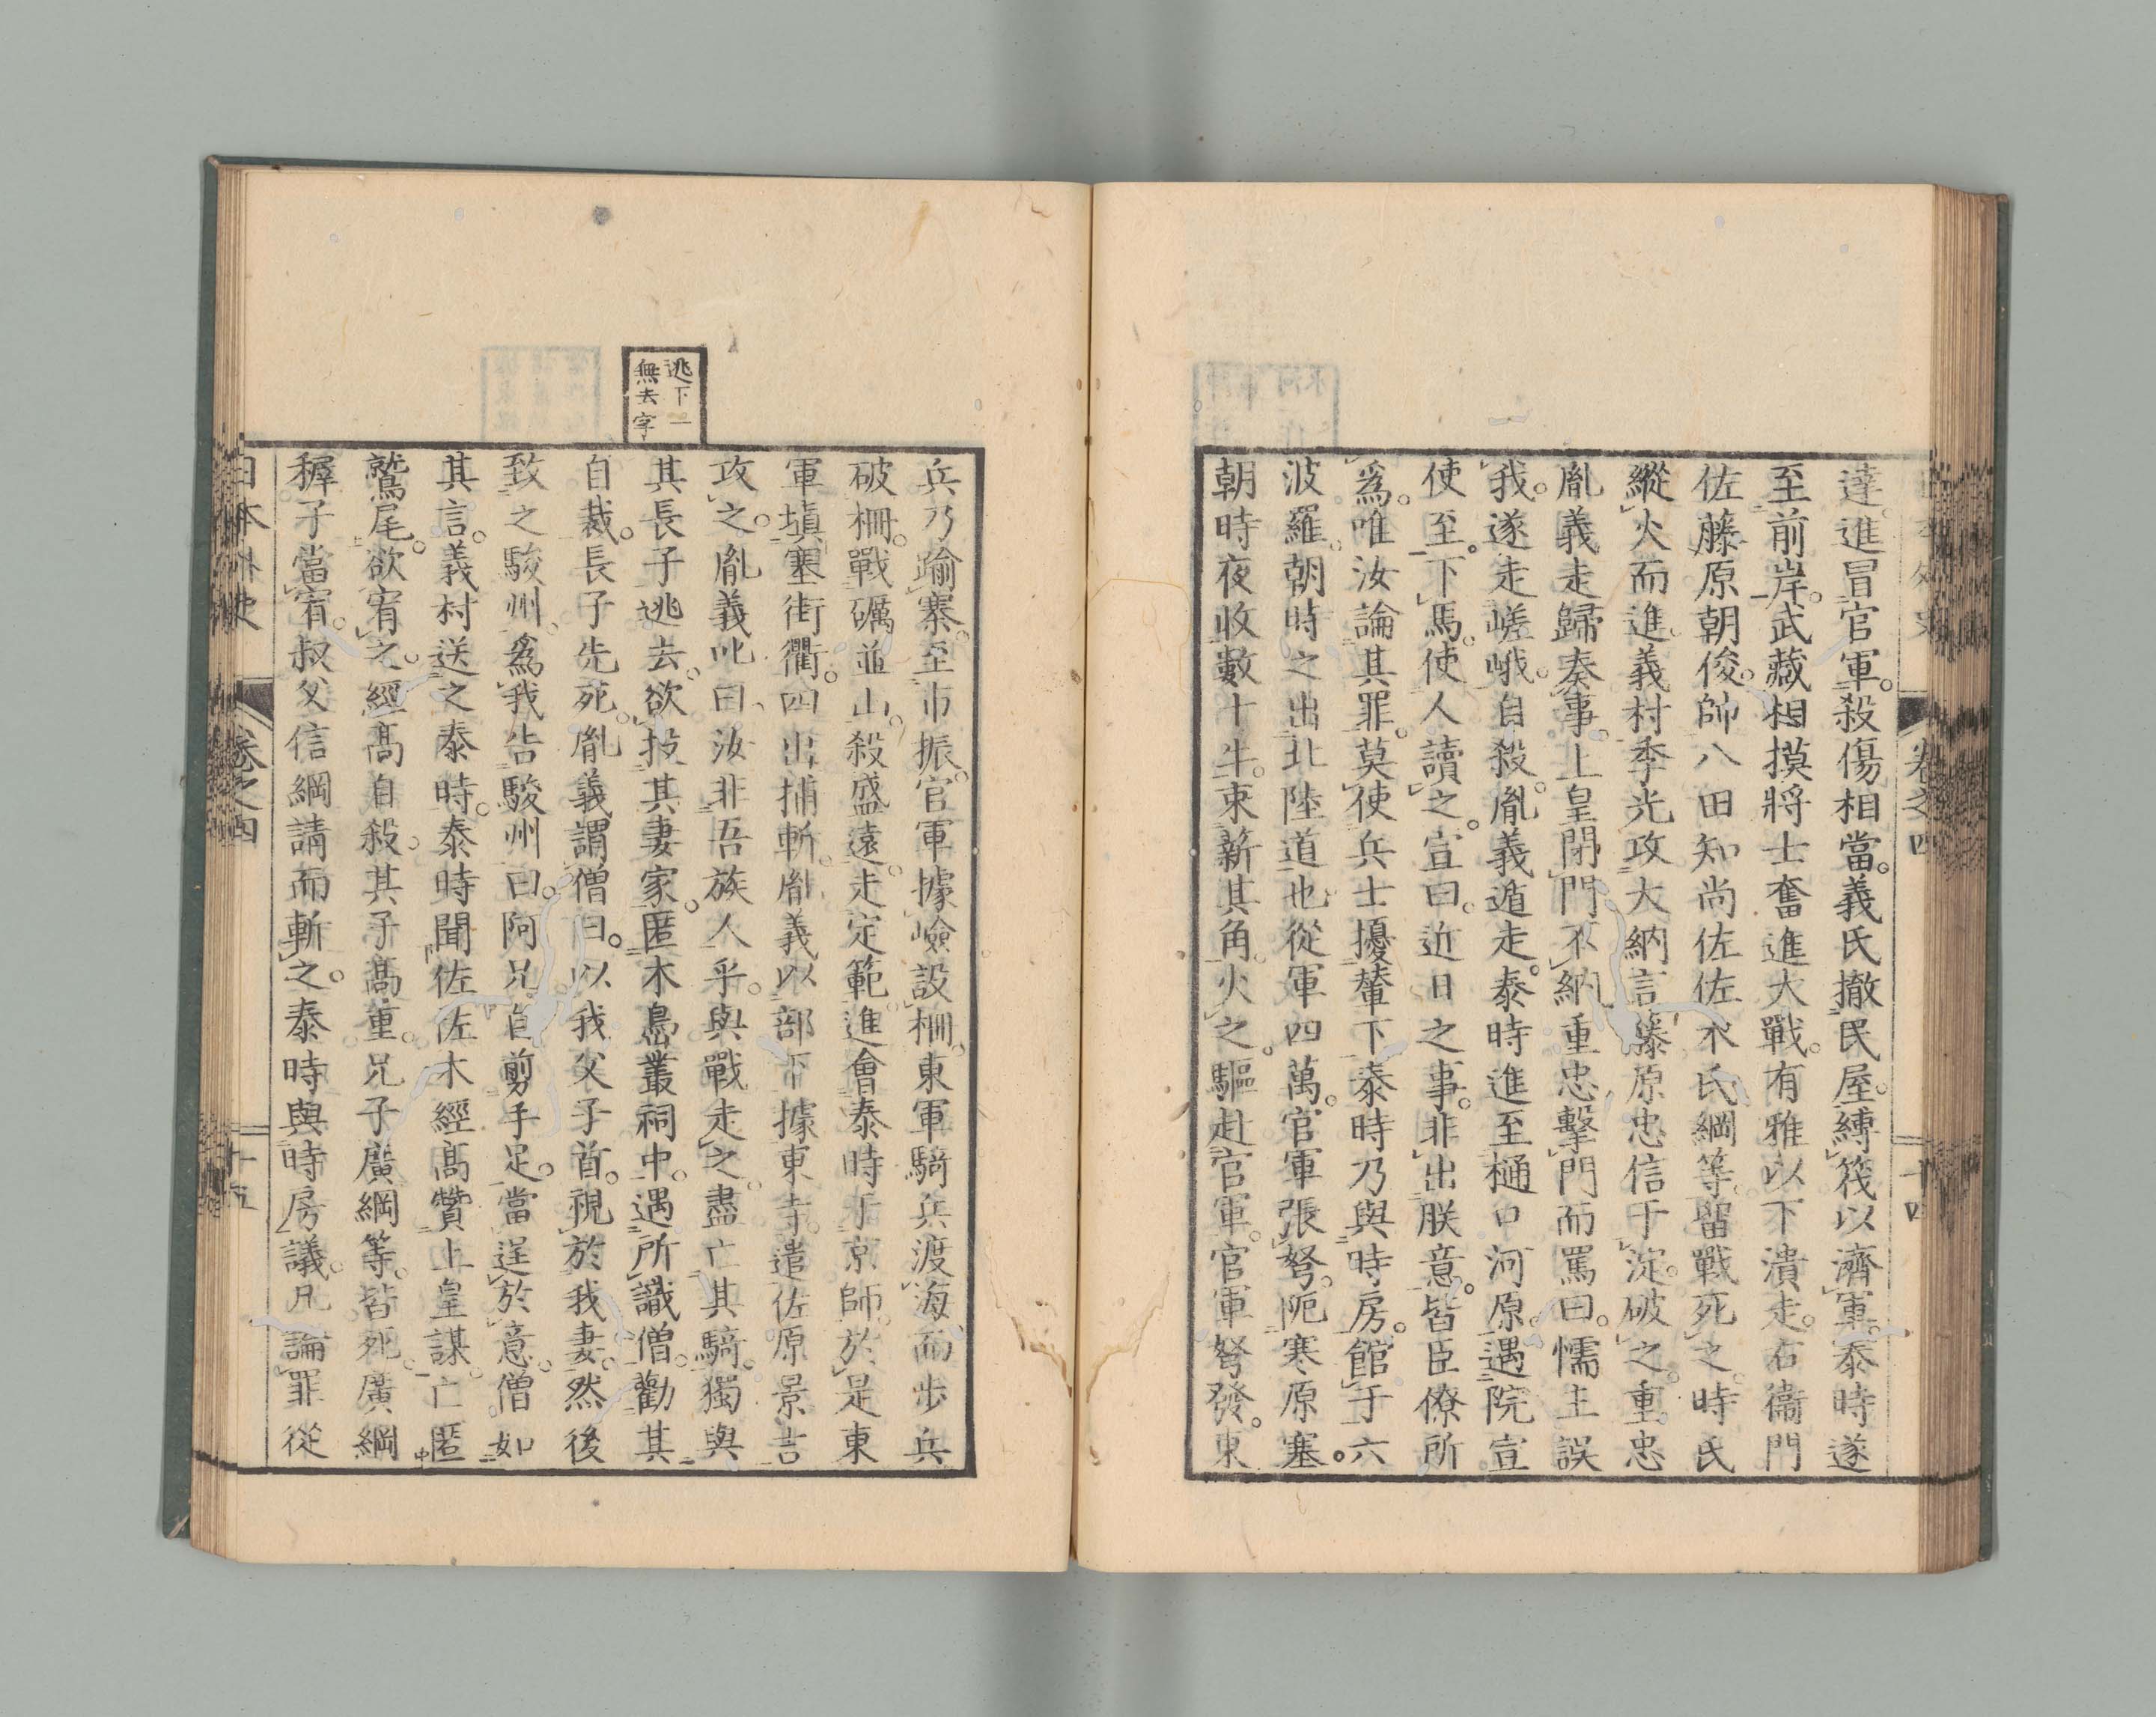 達進冒官軍。殺傷相當。義氏撤民屋。縛筏以濟軍。泰時遂
至前岸。武藏相摸將士奮進大戰。有雅以下潰走。右衞門
佐藤原朝俊。帥八田知尚佐佐木氏綱等。留戰死之。時氏
縱火而進。義村季光攻大納言藤原忠信于淀。破之。重忠
胤義走歸奏事。上皇閉門不納。重忠擊門而罵曰。懦主誤
我。遂走嵯峨。自殺。胤義遁走。泰時進至樋口河原。遇院宣
使至。下馬。使人讀之。宣曰。近日之事。非出朕意。皆臣僚所
爲。唯汝論其罪。莫使兵士擾輦下。泰時乃與時房。館于六
波羅。朝時之出北陸道也。從軍四萬。官軍張弩。阨寒原塞。
朝時夜收數十牛。束薪其角。火之。驅赴官軍。官軍弩發。東
卷之四
十四
逃下一
無去字
兵乃踰寨。至市振。官軍據嶮設柵。東軍騎兵渡海。而步兵
破柵。戰礪並山。殺盛遠。走定範。進會泰時于京師。於是東
軍塡塞街衢。四出捕斬。胤義以部下據東寺。遣佐原景吉
攻之。胤義叱曰。汝非吾族人乎。與戰走之。盡亡其騎。獨與
其長子逃去。欲技其妻家。匿木島叢祠中。遇所識僧。勸其
自裁。長子先死。胤義謂僧曰。以我父子首。視於我妻。然後
致之駿州。爲我告駿州曰。阿兄自剪手足。當逞於意。僧如
其言。義村送之泰時。泰時聞佐佐木經高贊上皇謀。亡匿
鷲尾。欲宥之。經高自殺。其子高重。兄子廣綱等。皆死。廣綱
穉子當宥。叔父信綱請而斬之。泰時與時房議。凡論罪從
日本外史
卷之四
十五